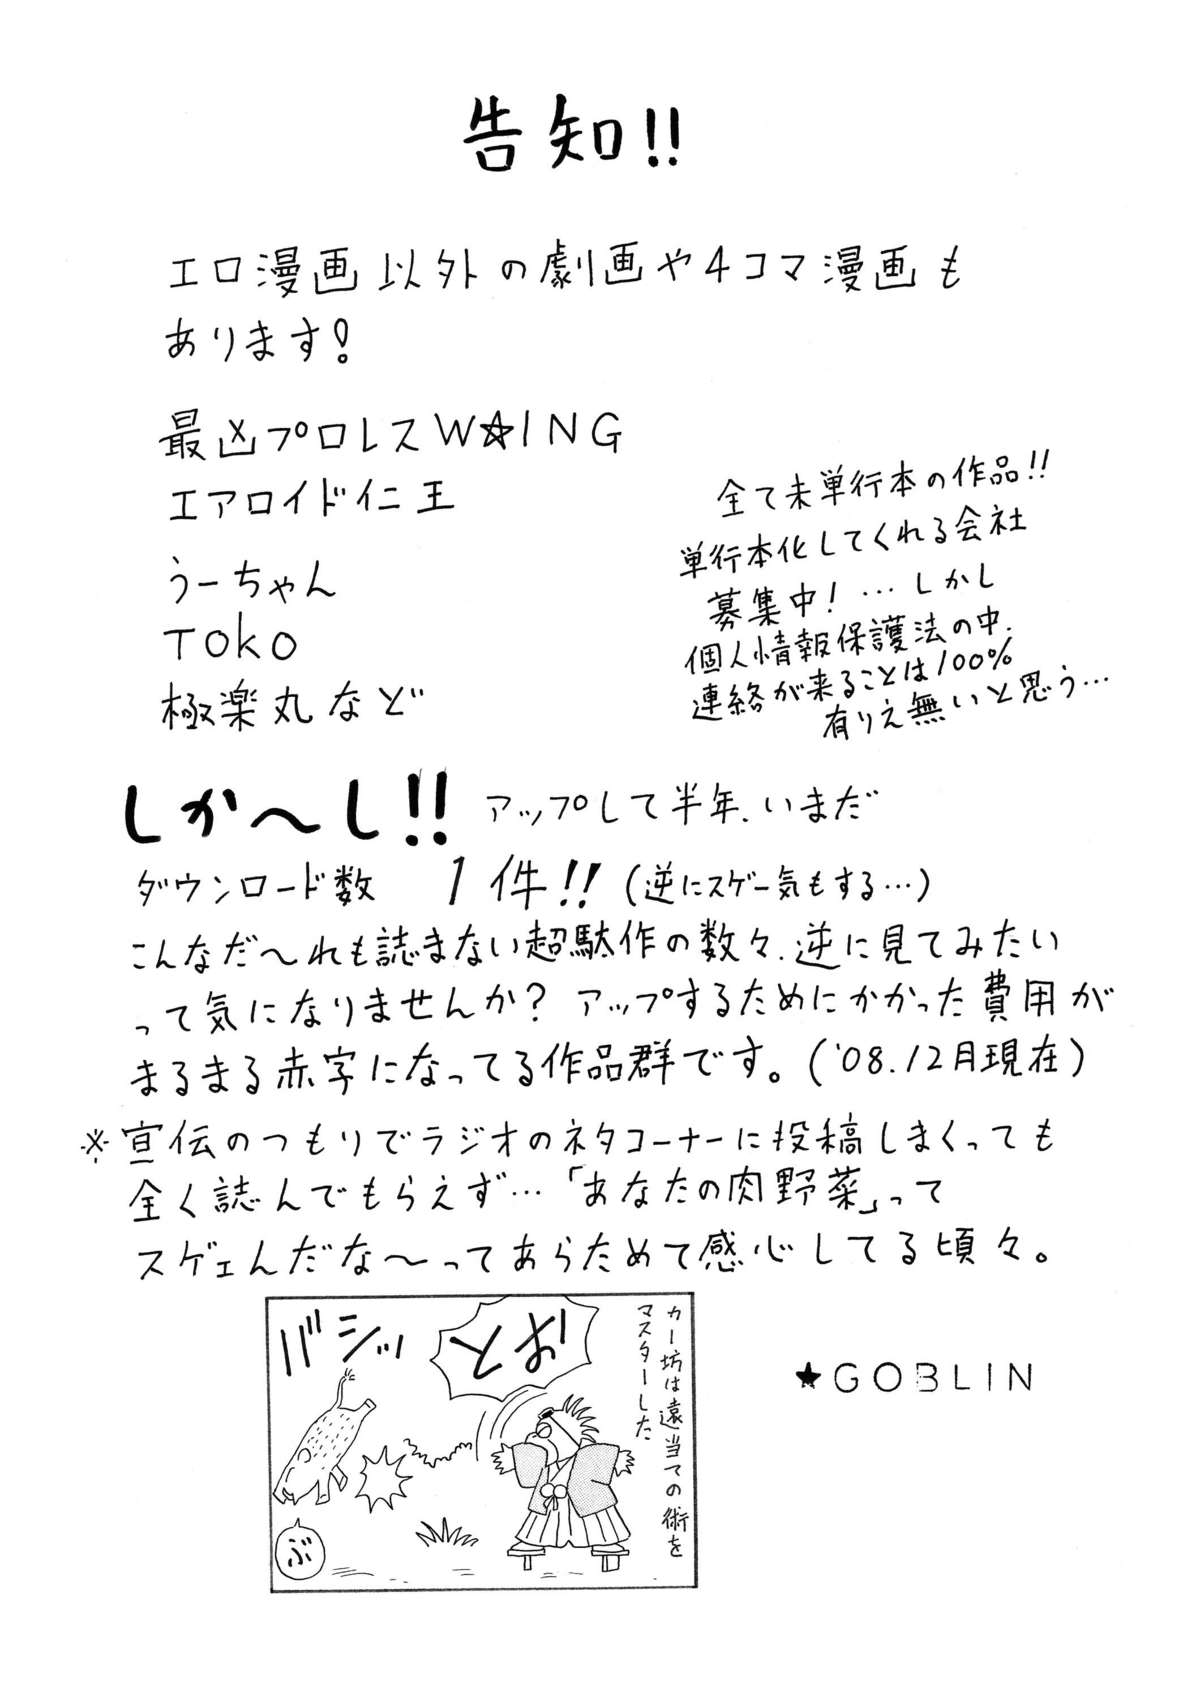 告知!!
エロ漫画以外の劇画や4コマ漫画も
あります!
最凶プロレスW☆ING
エアロイド仁王
うーちゃん
TOKO
極楽丸など
全て未単行本の作品!!
単行本化してくれる会社
募集中!…しかし
個人情報保護法の中、
連絡が来ることは100%
有りえ無いと思う…
しか〜し!! アップして半年、いまだ
ダウンロード数 1件!!(逆にスゲー気もする…)
こんなだ〜れも誌まない超駄作の数々、逆に見てみたい
って気になりませんか? アップするためにかかった費用が
まるまる赤字になってる作品群です。('08.12月現在)
※宣伝のつもりでラジオのネタコーナーに投稿しまくっても
全く誌んでもらえず…「あなたの肉野菜」って
スゲェんだな〜ってあらためて感心してる頃々。
カー坊は遠当ての術を
マスターした
とお
バシッ
ぶ
★GOBLIN